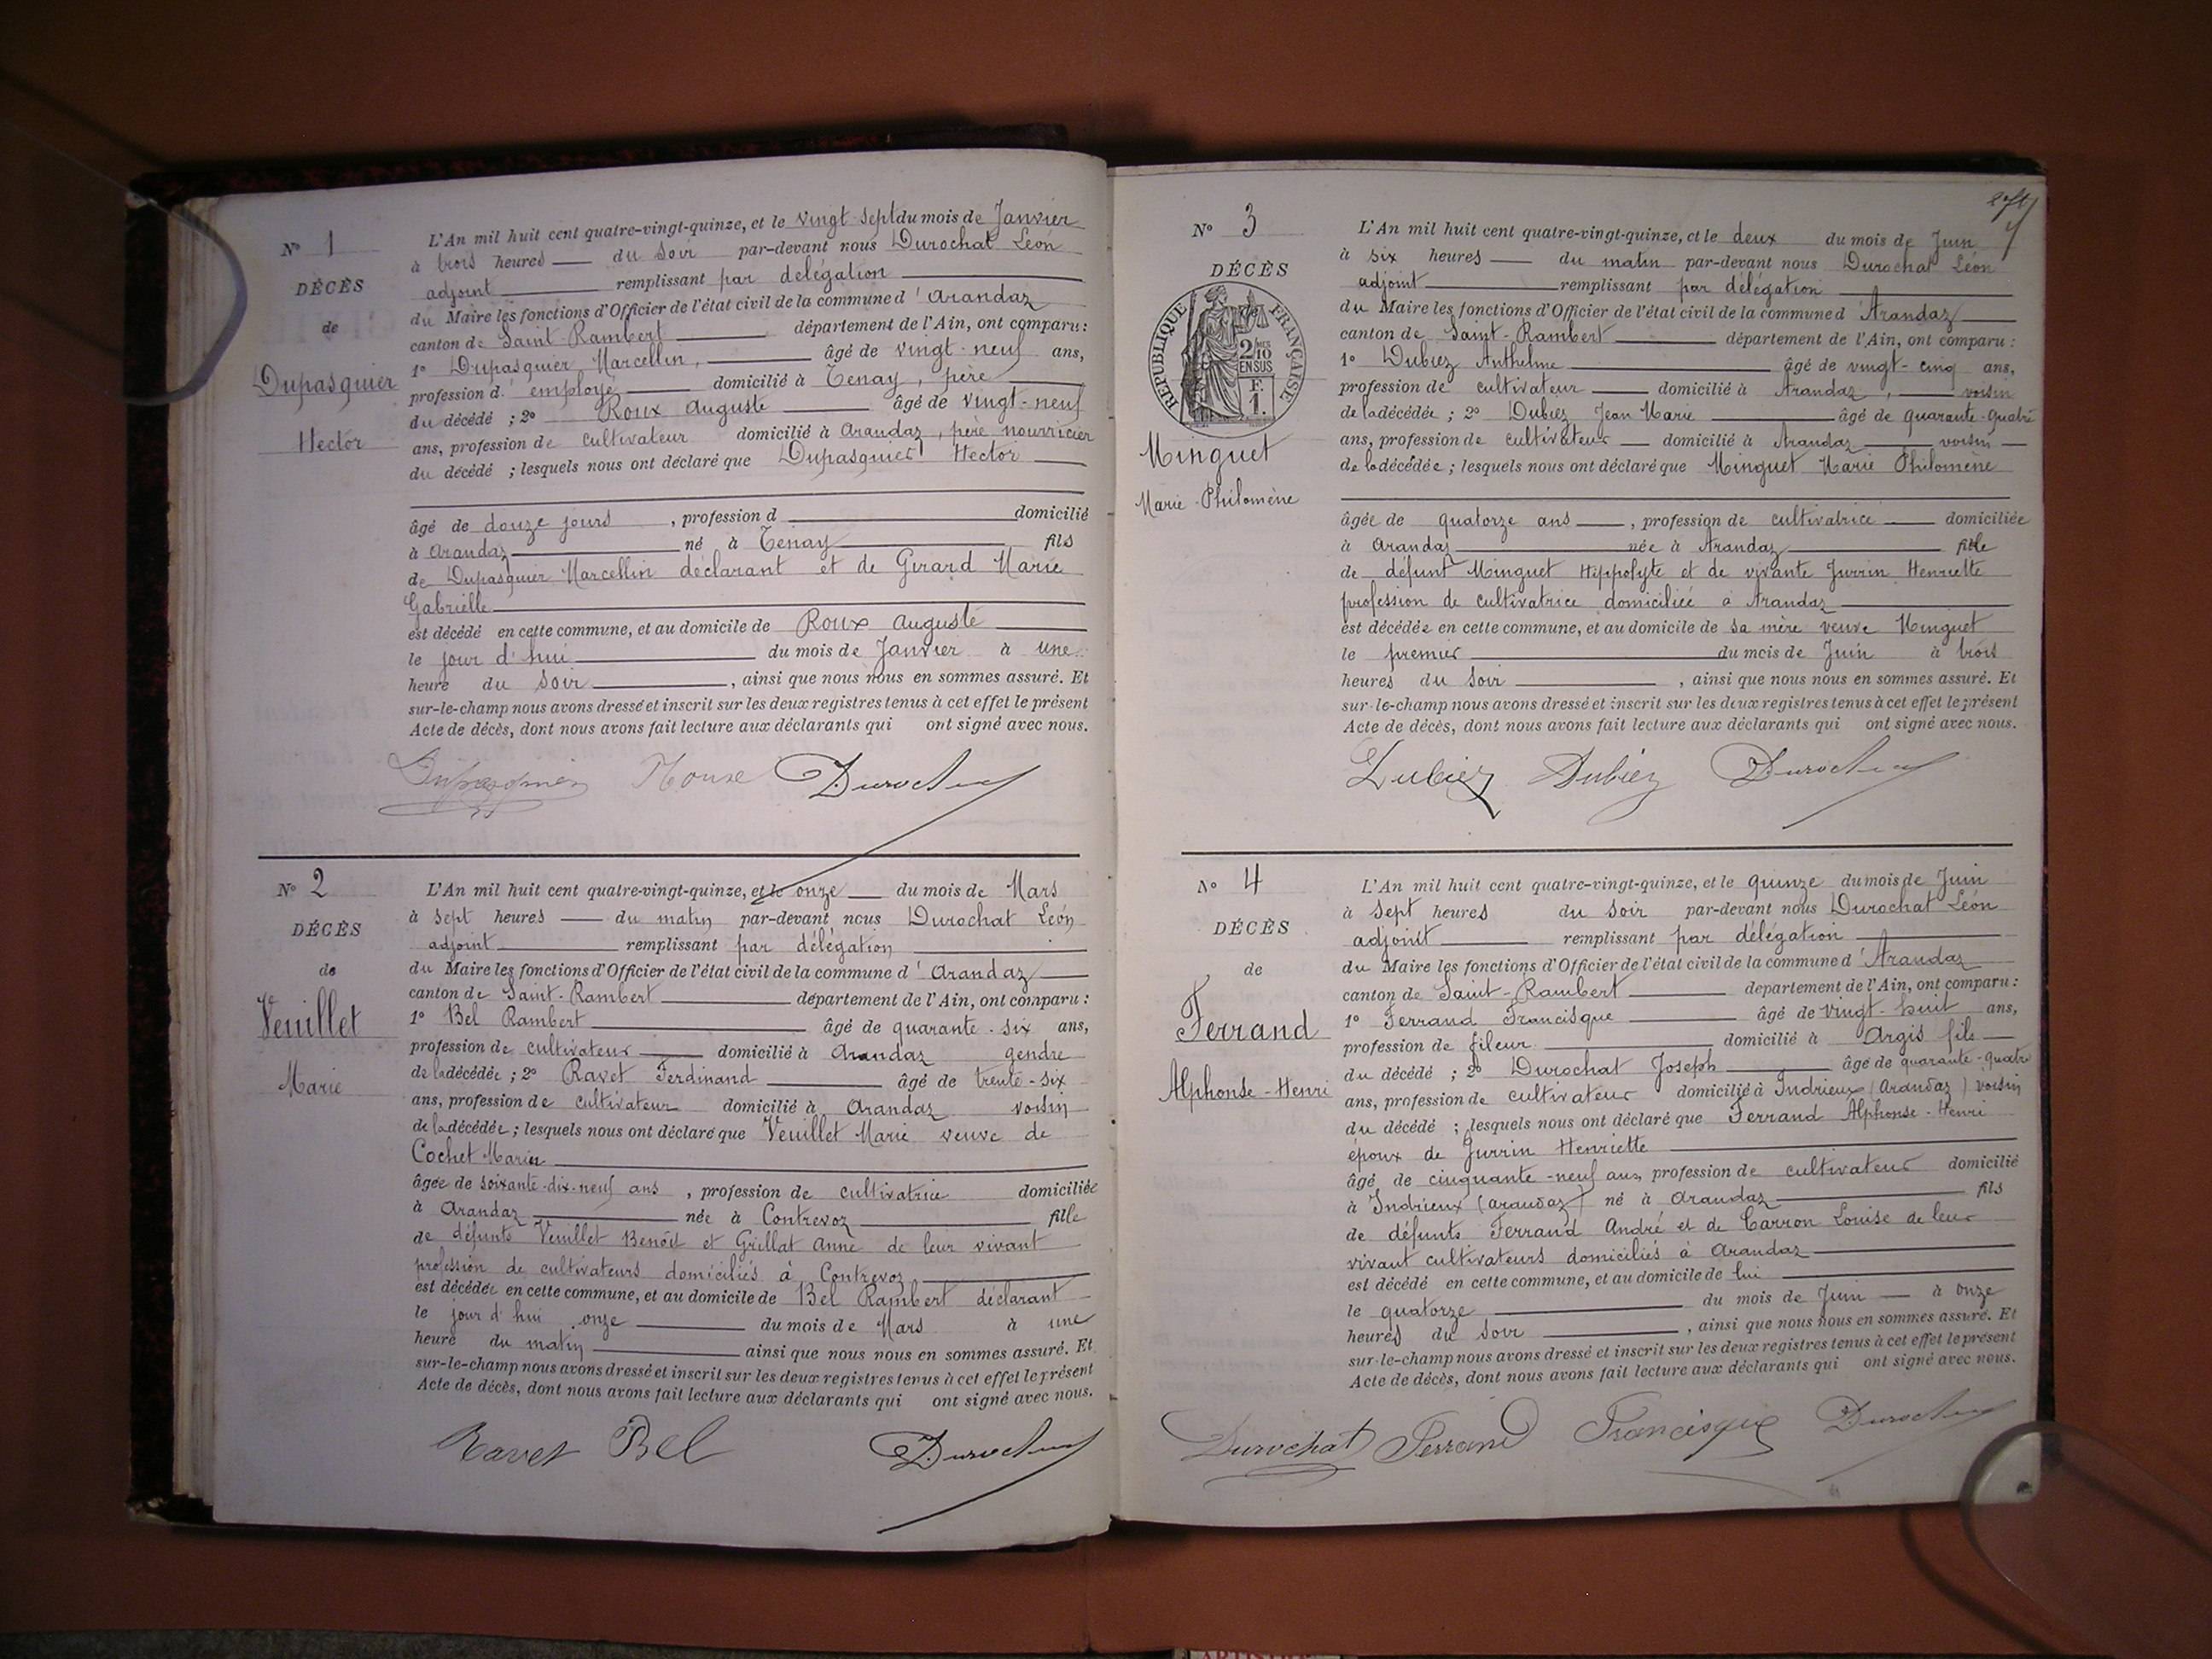 N° 1
DÉCÈS
de
Dupasquier
Hector
L'An mil huit cent quatre-vingt-quinze, et le vingt-sept du mois de Janvier
à trois heures du soir par-devant nous Durochat Léon
adjoint remplissant par délégation
du Maire les fonctions d'Officier de l'état civil de la commune d'Arandaz
canton de Saint-Rambert département de l'Ain, ont comparu :
1° Dupasquier Marcellin, âgé de vingt-neuf ans,
profession d'employé domicilié à Tenay, père
du décédé ; 2° Roux Auguste âgé de vingt-neuf
ans, profession de cultivateur domicilié à Arandaz, père nourricier
du décédé ; lesquels nous ont déclaré que Dupasquier Hector
âgé de douze jours , profession d domicilié
à Arandaz né à Tenay fils
de Dupasquier Marcellin déclarant et de Girard Marie
Gabrielle
est décédé en cette commune, et au domicile de Roux Auguste
le jour d'hui du mois de Janvier à une
heure du soir , ainsi que nous nous en sommes assuré. Et
sur-le-champ nous avons dressé et inscrit sur les deux registres tenus à cet effet le présent
Acte de décès, dont nous avons fait lecture aux déclarants qui ont signé avec nous.
Dupasquier Roux Durochat
N° 2
DÉCÈS
de
Veuillet
Marie
L'An mil huit cent quatre-vingt-quinze, et le onze du mois de Mars
à sept heures du matin par-devant nous Durochat Léon
adjoint remplissant par délégation
du Maire les fonctions d'Officier de l'état civil de la commune d'Arandaz
canton de Saint-Rambert département de l'Ain, ont comparu :
1° Bel Rambert âgé de quarante-six ans,
profession de cultivateur domicilié à Arandaz gendre
de la décédée ; 2° Ravet Ferdinand âgé de trente-six
ans, profession de cultivateur domicilié à Arandaz voisin
de la décédée ; lesquels nous ont déclaré que Veuillet Marie veuve de
Cochet Marin
âgée de soixante-dix-neuf ans , profession de cultivatrice domiciliée
à Arandaz née à Contrevoz fille
de défunts Veuillet Benoît et Grillat Anne de leur vivant
profession de cultivateurs domiciliés à Contrevoz
est décédée en cette commune, et au domicile de Bel Rambert déclarant
le jour d'hui onze du mois de Mars à une
heure du matin ainsi que nous nous en sommes assuré. Et
sur-le-champ nous avons dressé et inscrit sur les deux registres tenus à cet effet le présent
Acte de décès, dont nous avons fait lecture aux déclarants qui ont signé avec nous.
Ravet Bel Durochat
N° 3
DÉCÈS
RÉPUBLIQUE FRANÇAISE
2/10 EN SUS
F. 1.
Minguet
Marie-Philomène
L'An mil huit cent quatre-vingt-quinze, et le deux du mois de Juin
à six heures du matin par-devant nous Durochat Léon
adjoint remplissant par délégation
du Maire les fonctions d'Officier de l'état civil de la commune d'Arandaz
canton de Saint-Rambert département de l'Ain, ont comparu :
1° Dubiez Anthelme âgé de vingt-cinq ans,
profession de cultivateur domicilié à Arandaz, voisin
de la décédée ; 2° Dubiez Jean Marie âgé de quarante-quatre
ans, profession de cultivateur domicilié à Arandaz voisin
de la décédée ; lesquels nous ont déclaré que Minguet Marie Philomène
âgée de quatorze ans , profession de cultivatrice domiciliée
à Arandaz née à Arandaz fille
de défunt Minguet Hippolyte et de vivante Jurrin Henriette
profession de cultivatrice domiciliée à Arandaz
est décédée en cette commune, et au domicile de sa mère veuve Minguet
le premier du mois de Juin à trois
heures du soir , ainsi que nous nous en sommes assuré. Et
sur-le-champ nous avons dressé et inscrit sur les deux registres tenus à cet effet le présent
Acte de décès, dont nous avons fait lecture aux déclarants qui ont signé avec nous.
Dubiez Dubiez Durochat
N° 4
DÉCÈS
de
Ferrand
Alphonse-Henri
L'An mil huit cent quatre-vingt-quinze, et le quinze du mois de Juin
à sept heures du soir par-devant nous Durochat Léon
adjoint remplissant par délégation
du Maire les fonctions d'Officier de l'état civil de la commune d'Arandaz
canton de Saint-Rambert département de l'Ain, ont comparu :
1° Ferrand Francisque âgé de vingt-huit ans,
profession de fileur domicilié à Argis fils
du décédé ; 2° Durochat Joseph âgé de quarante-quatre
ans, profession de cultivateur domicilié à Indrieux (Arandaz) voisin
du décédé ; lesquels nous ont déclaré que Ferrand Alphonse-Henri
époux de Jurrin Henriette
âgé de cinquante-neuf ans, profession de cultivateur domicilié
à Indrieux (Arandaz) né à Arandaz fils
de défunts Ferrand André et de Carron Louise de leur
vivant cultivateurs domiciliés à Arandaz
est décédé en cette commune, et au domicile de lui
le quatorze du mois de Juin à onze
heures du soir , ainsi que nous nous en sommes assuré. Et
sur-le-champ nous avons dressé et inscrit sur les deux registres tenus à cet effet le présent
Acte de décès, dont nous avons fait lecture aux déclarants qui ont signé avec nous.
Durochat Ferrand Francisque Durochat